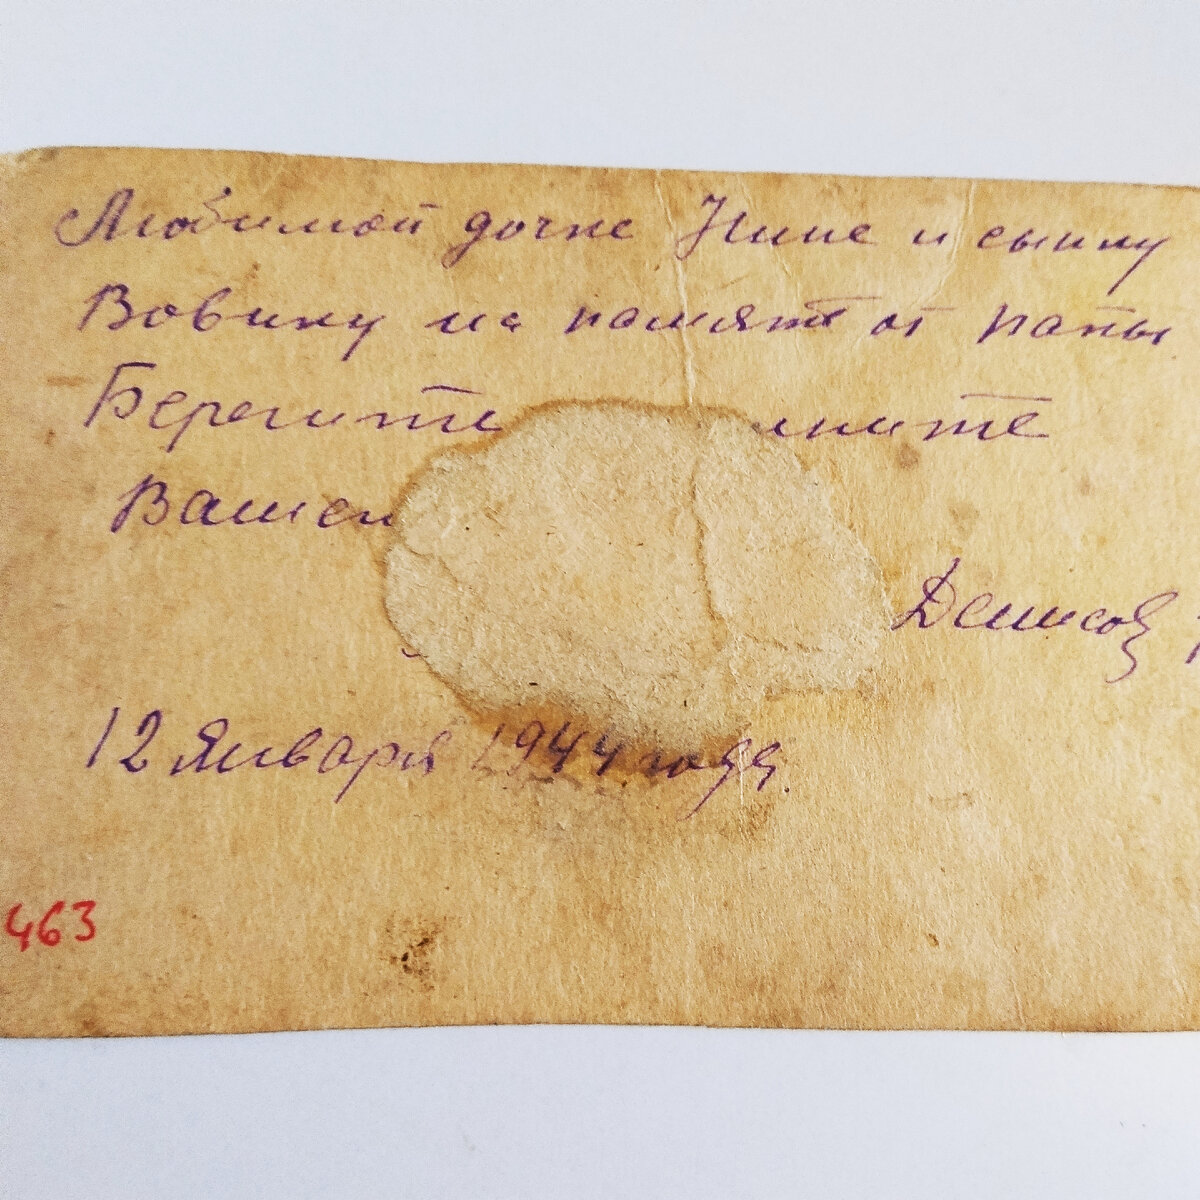 Любимой дочке Нине и сынку
Вовику на память от папы
Берегите
Вашего
Денисов
12 Января 1944 года.
463